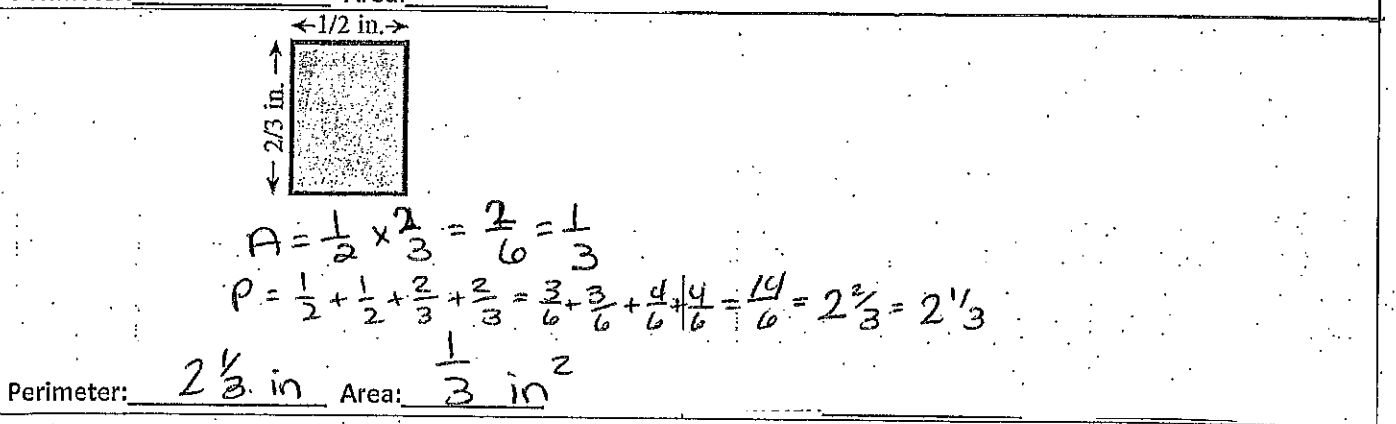 ←1/2 in.→
← 2/3 in. →
A = 1/2 × 2/3 = 2/6 = 1/3
P = 1/2 + 1/2 + 2/3 + 2/3 = 3/6 + 3/6 + 4/6 + 4/6 = 14/6 = 2 2/3 = 2 1/3
Perimeter: 2 1/3 in Area: 1/3 in²